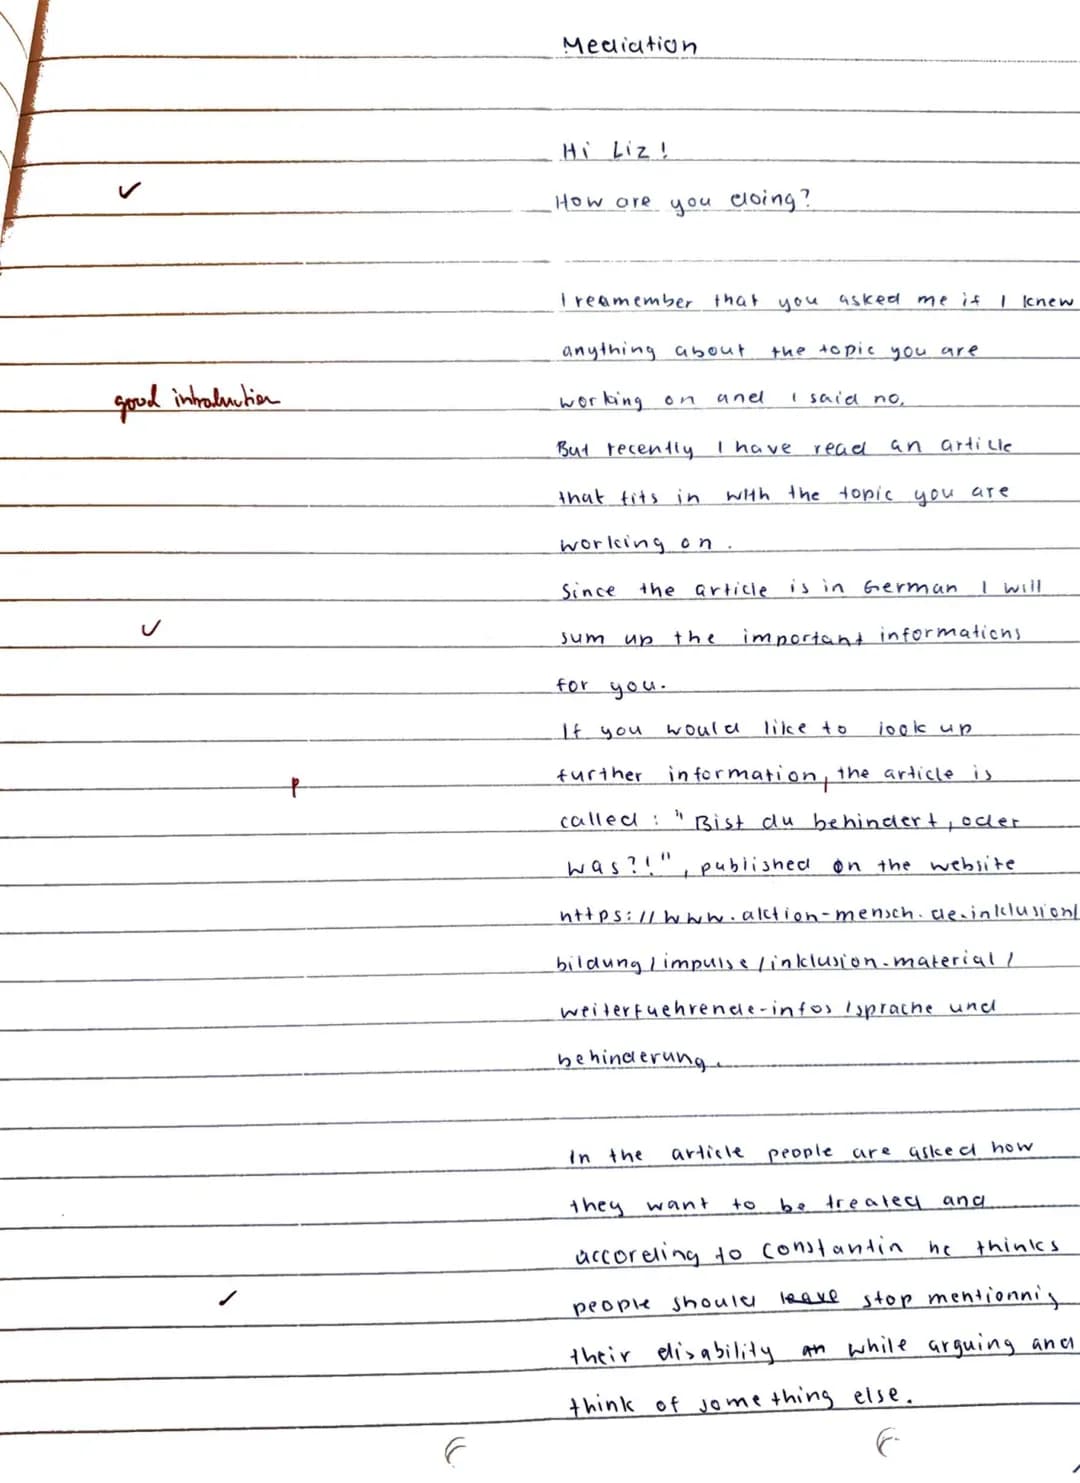 Mediation
Hi Liz!
✓
How are you doing?
I reamember that you asked me if I knew
anything about the topic you are
good introduction
working on and I said no.
But recently I have read an article
that fits in with the topic you are
working on.
Since the article is in German I will
✓
sum up the important informations
for you.
If you would like to look up
P
further information, the article is
called: "Bist du behindert, oder
was?!", published on the website
https://www.aktion-mensch.de.inklusion/
bildung/impulse/inklusion-material/
weiterfuehrende-infos/sprache und
behinderung.
In the article people are asked how
they want to be treated and
according to Constantin he thinks
✓
people should leave stop mentionnig
their disability an while arguing and
think of something else.